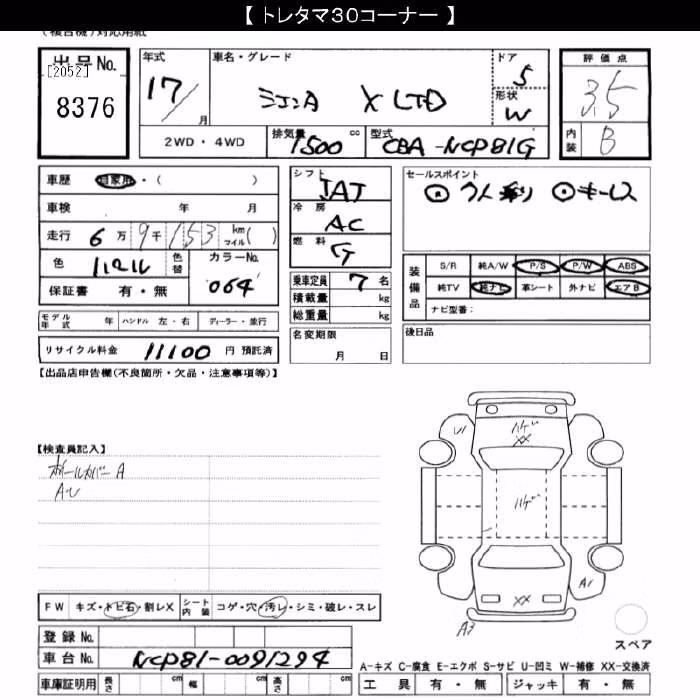 【 トレタマ30コーナー 】
(複合機)対応用紙
出品No. [2052] 8376
年式 17/ 月
車名・グレード シエンタ X LTD
ドア 5
形状 W
評価点 3.5
内装 B
2WD・4WD 排気量 1500 cc 型式 CBA-NCP81G
車歴 自家用・( )
車検 年 月
走行 6万9千153 km マイル( )
色 パール 色替 カラーNo. 064
保証書 有・無
シフト IAT
冷房 AC
燃料 G
乗車定員 7 名
積載量 kg
総重量 kg
セールスポイント
7人乗り キーレス
装備品 S/R 純A/W P/S P/W ABS
純TV 純ナビ 革シート 外ナビ エアB
ナビ型番:
モデル年式 年 ハンドル 左・右 ディーラー・並行
名変期限 月 日
後日品
リサイクル料金 11100 円 預託済
【出品店申告欄(不良箇所・欠品・注意事項等)】
【検査員記入】
ホイールカバーA
U1
XX
XX
A1
A3
FW キズ・トビ石・割レX シート内装 コゲ・穴・汚レ・シミ・破レ・スレ
スペア
登録No.
車台No. NCP81-0091294
A-キズ C-腐食 E-エクボ S-サビ U-凹ミ W-補修 XX-交換済
車庫証明用 長さ cm 幅 cm 高さ cm
工具 有・無 ジャッキ 有・無